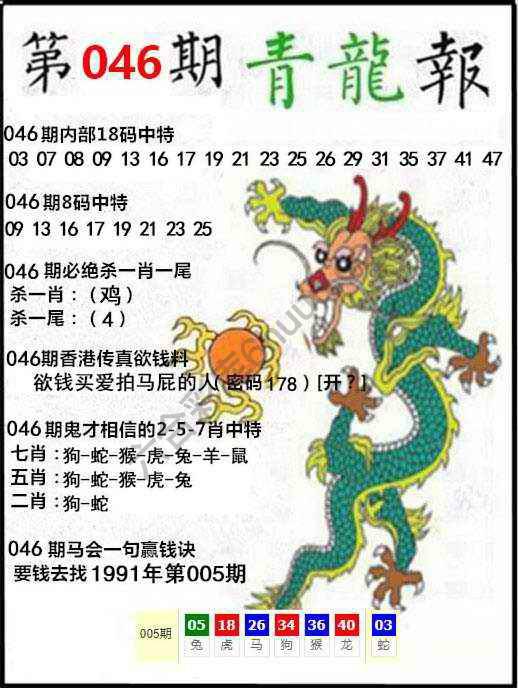 第046期 青龍報
046期内部18码中特
03 07 08 09 13 16 17 19 21 23 25 26 29 31 35 37 41 47
046期8码中特
09 13 16 17 19 21 23 25
046 期必绝杀一肖一尾
杀一肖：（鸡）
杀一尾：（4）
046期香港传真欲钱料
欲钱买爱拍马屁的人（密码178）[开？]
046期鬼才相信的2-5-7肖中特
七肖：狗-蛇-猴-虎-兔-羊-鼠
五肖：狗-蛇-猴-虎-兔
二肖：狗-蛇
046 期马会一句赢钱诀
要钱去找 1991年第005期
005期 05 18 26 34 36 40 03
兔 虎 马 狗 猴 龙 蛇